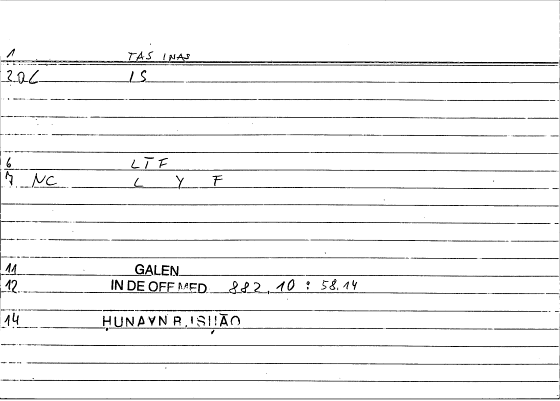 1 TAS INAS
2 DC IS
6 LTF
7 NC L Y F
11 GALEN
12 IN DE OFF MED 882,10 : 58.14
14 ḤUNAYN B. ISḤĀQ